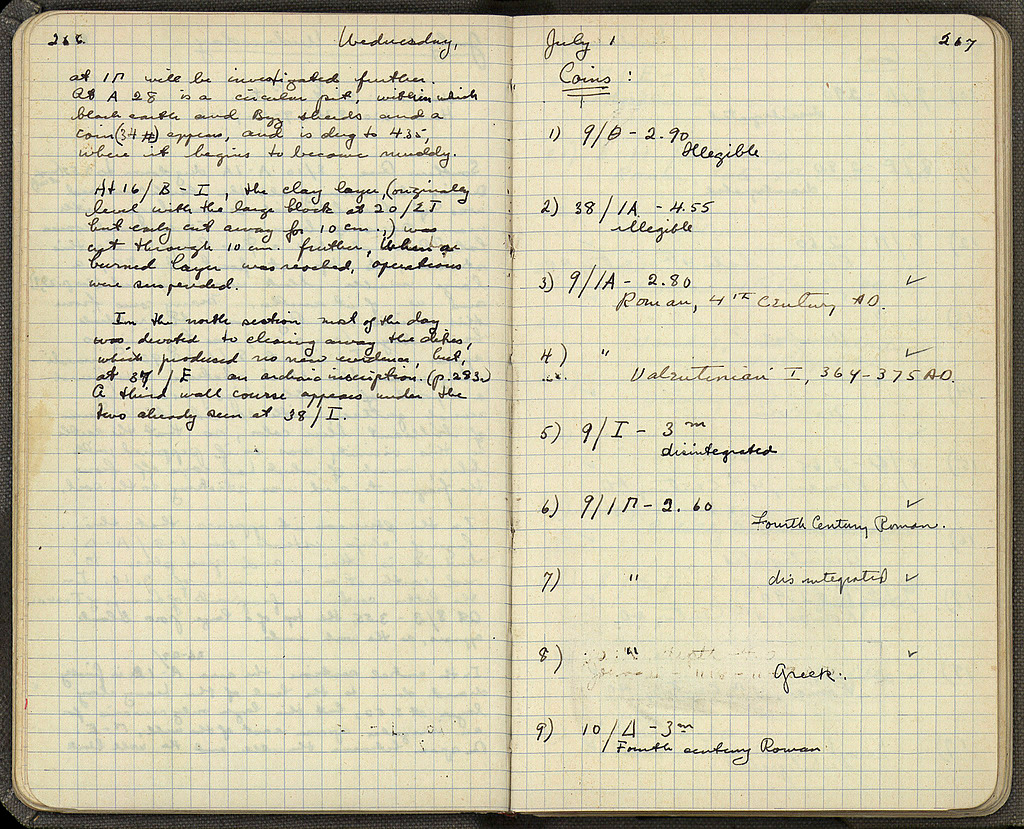 266. Wednesday,
at 1Π will be investigated further.
At A 28 is a circular pit, within which
black earth and Byz sherds and a
coin (34#) appears, and is dug to 4.35,
where it begins to become muddy.
At 16/B - I, the clay layer, (originally
level with the large block at 20/ΣΤ
but early cut away for 10 cm.,) was
cut through 10 cm. further, when a
burned layer was reached, operations
were suspended.
In the north section most of the day
was devoted to cleaning away the debris,
which produced no new evidence, but,
at 37/E an archaic inscription. (p. 283.)
A third wall course appears under the
two already seen at 38/I.
July 1 267
Coins:
1) 9/Θ - 2.90
Illegible
2) 38/1A - 4.55
illegible
3) 9/1A - 2.80 ✓
Roman, 4TH Century AD.
4) " ✓
Valentinian I, 364-375 AD.
5) 9/I - 3m
disintegrated
6) 9/1Π - 2.60 ✓
Fourth Century Roman.
7) " disintegrated ✓
8) " ✓
Greek.
9) 10/Δ - 3m
Fourth century Roman